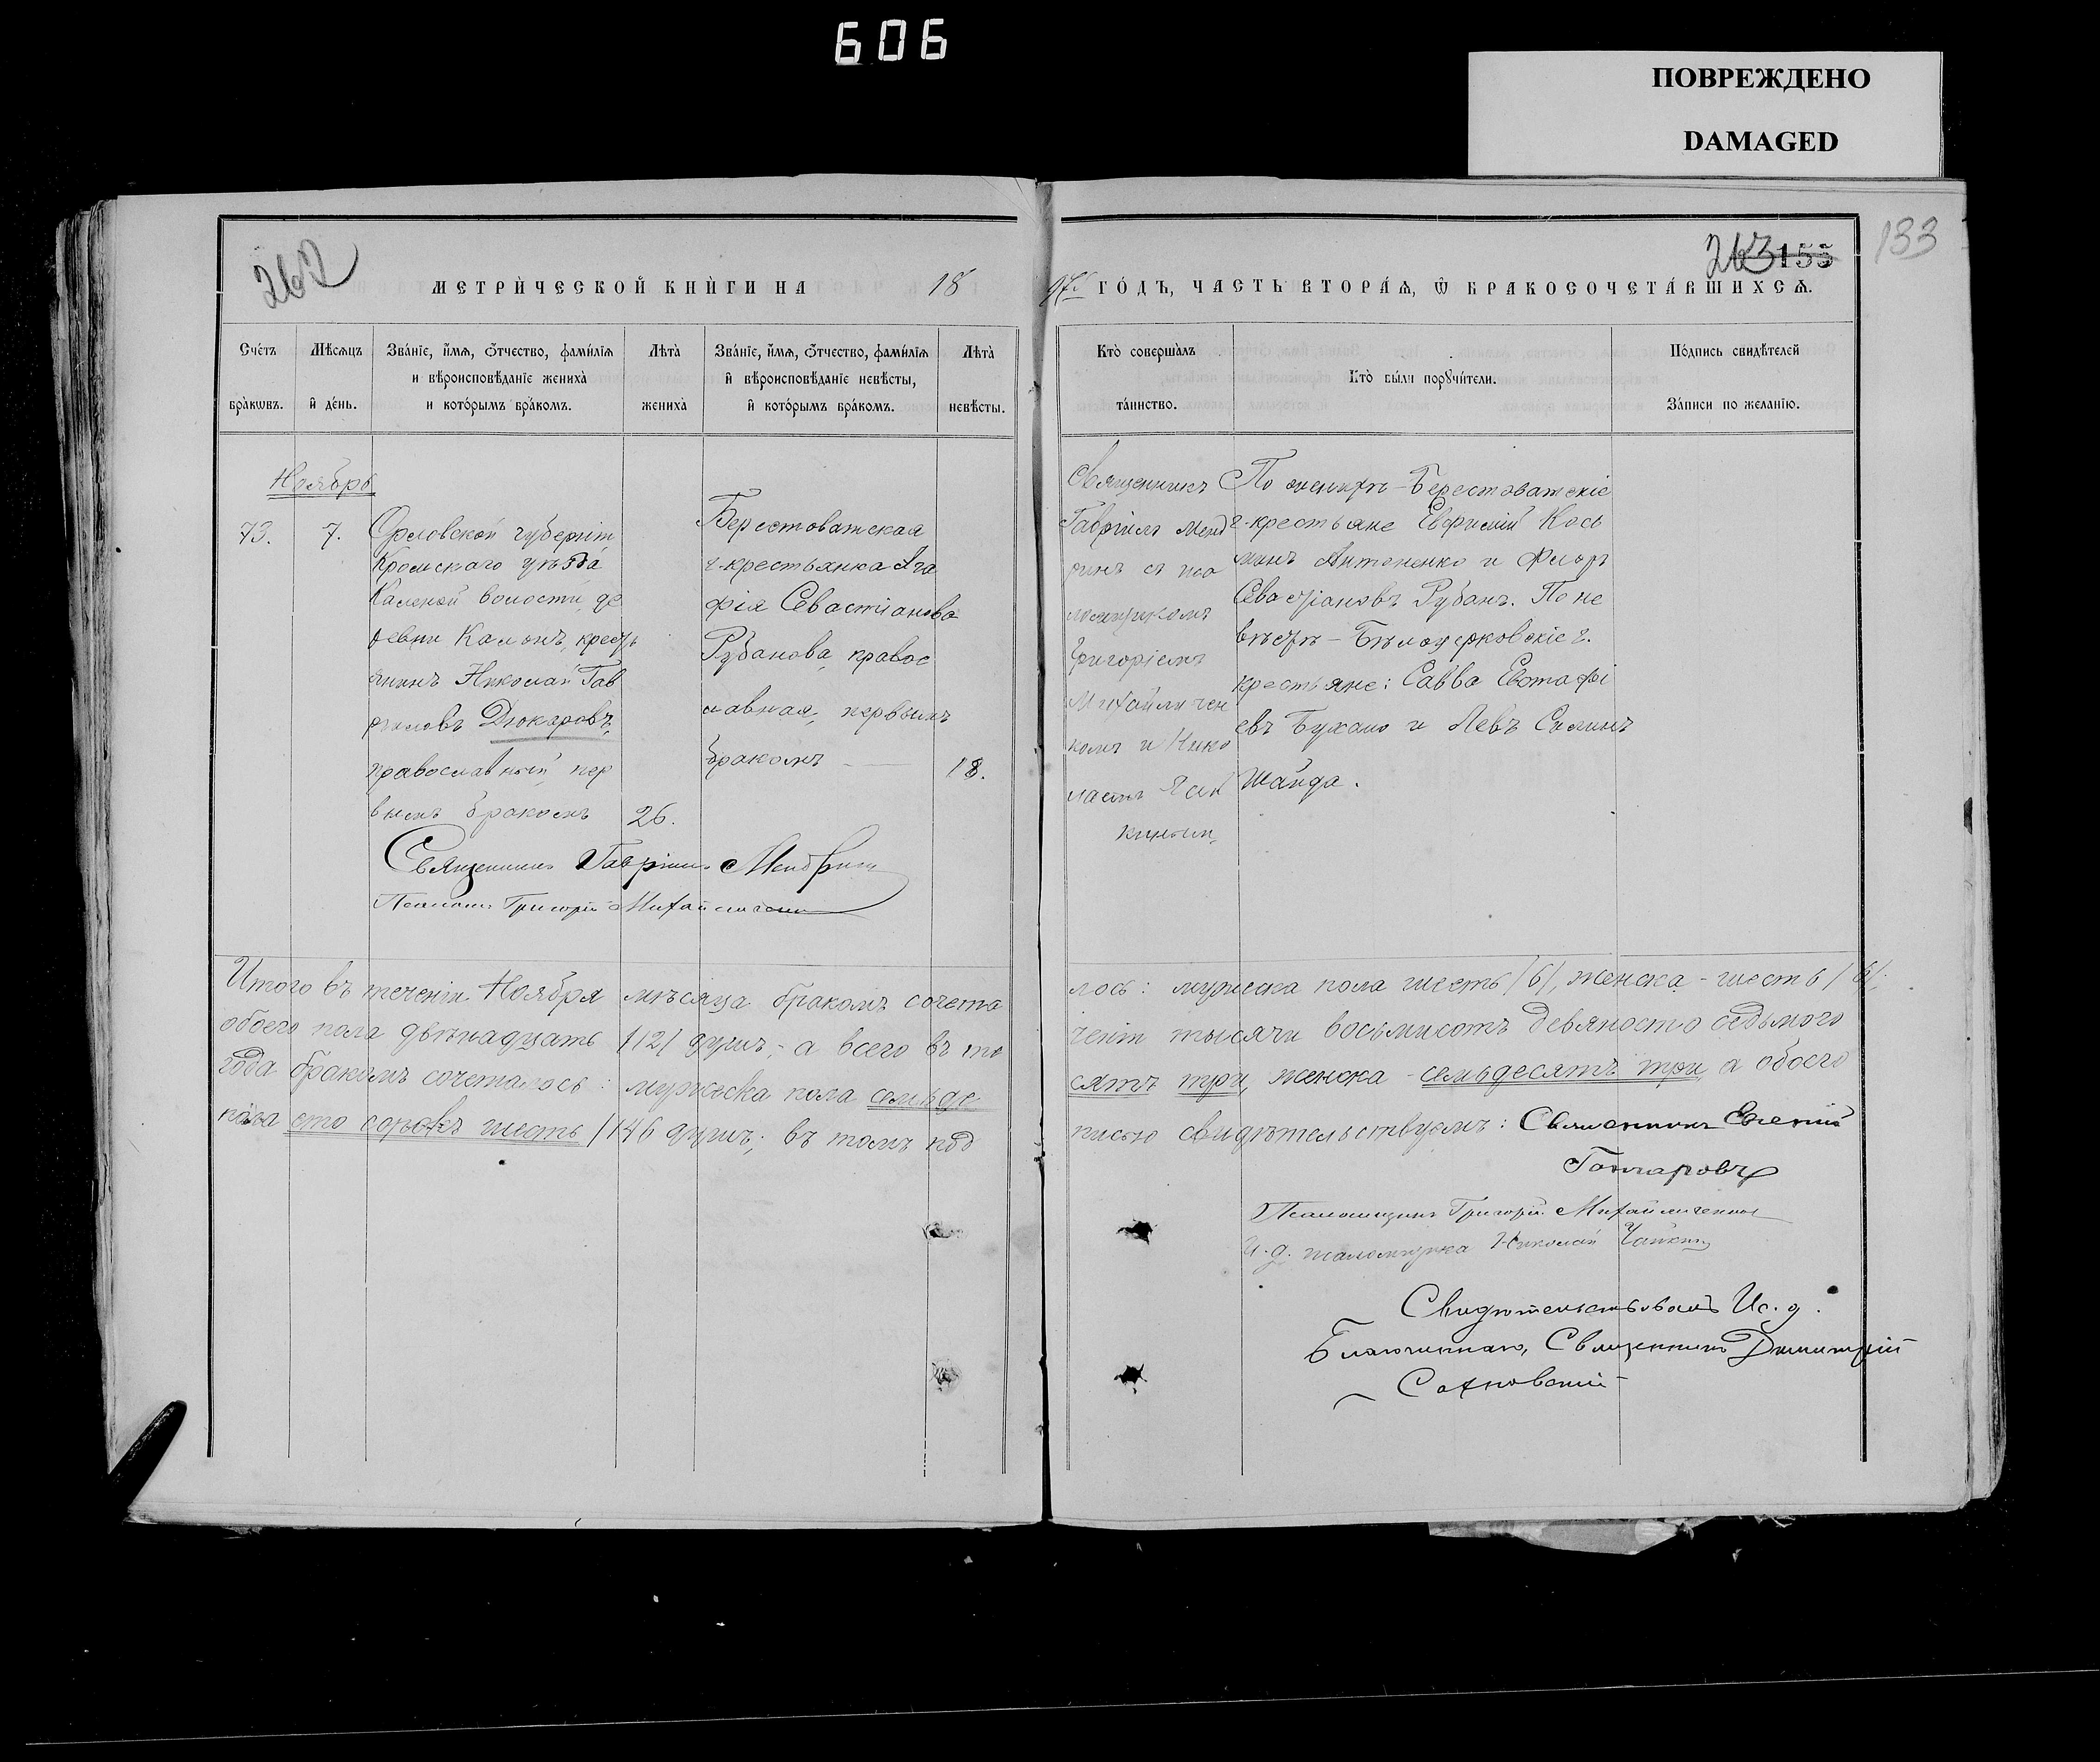 606
ПОВРЕЖДЕНО
DAMAGED
262
263 155
133
МЕТРИ́ЧЕСКОЙ КНИ́ГИ НА 18
97й ГО́ДЪ, ЧАСТЬ ВТОРА́Я, Ѿ БРАКОСОЧЕТА́ВШИХСЯ.
Сче́тъ бра́кѡвъ.
Мѣ́сяцъ и҆ де́нь.
Зва́нїе, и҆́мя, ѻ҆́тчество, фами́лїя
и вѣроисповѣ́данїе жениха̀
и кото́рымъ бра́комъ.
Лѣта̀ жениха̀
Зва́нїе, и҆́мя, ѻ҆́тчество, фами́лїя
и҆ вѣроисповѣ́данїе невѣ́сты,
и҆ кото́рымъ бра́комъ.
Лѣта̀ невѣ́сты.
Кто̀ соверша́лъ
та́инство.
Кто̀ бы́ли порꙋчи́тели.
По́дпись свидѣ́телей
За́писи по жела́нїю.
Ноябрь
73.
7.
Орловской губерніи
Кромскаго уѣзда
волости, де
ревни кресть
янинъ Николай Гав
риловъ Дюкаровъ,
православный, пер
вымъ бракомъ
26.
Берестоватская
г. крестьянка Ага
фія Севастіанова
Рубанова, правос
лавная, первымъ
бракомъ —
18.
Священникъ
Гавріилъ Менд
ринъ съ пса
ломщикомъ
Григоріемъ
Михайличен
комъ и Нико
лаемъ Чай
кинымъ
По женихѣ – Берестоватскіе
г. крестьяне Евфимій Кось
минъ Антоненко и Флоръ
Севастіановъ Рубанъ. По не
вѣстѣ – Бѣлоцерковскіе г.
крестьяне: Савва Евстафі
евъ и Левъ
Шайда.
Священникъ Гавріилъ Мендринъ
Псаломщ. Григорій Михайличенко
Итого въ теченіи Ноября мѣсяца бракомъ сочета
лось: мужеска пола шесть /6/, женска – шесть /6/;
обоего пола двѣнадцать /12/ душъ; – а всего въ те
ченіи тысячи восьмисотъ девяносто седьмого
года бракомъ сочеталось: мужеска пола семьде
сятъ три, женска – семьдесятъ три, а обоего
пола сто сорокъ шесть /146 душъ; въ томъ под
писью свидѣтельствуемъ: Священникъ Евгеній
Гончаровъ
Псаломщикъ Григорій Михайличенко
И. д. псаломщика Николай Чайкинъ
Свидѣтельствовалъ Ис. д.
Благочиннаго, Священникъ Димитрій
Сахновскій